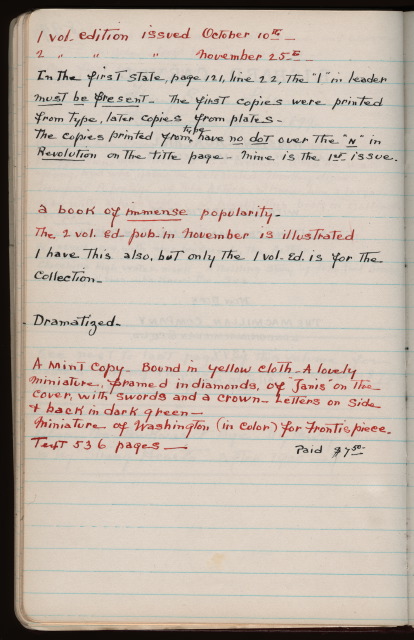 1 vol. edition issued October 10th —
2 " " " November 25th —
In the first state, page 121, line 22, the "l" in leader
must be present — The first copies were printed
from type, later copies from plates —
type
The copies printed from, have no dot over the "N" in
Revolution on the title page — Mine is the 1st issue.
A book of immense popularity —
The 2 vol. Ed. pub. in November is illustrated
I have this also, but only the 1 vol. Ed. is for the
Collection —
Dramatized —
A Mint Copy — Bound in yellow cloth — A lovely
miniature, framed in diamonds, of "Janis" on the
cover, with swords and a crown — Letters on side
& back in dark green —
Miniature of Washington (in color) for Frontispiece.
Text 536 pages —
Paid $7.50